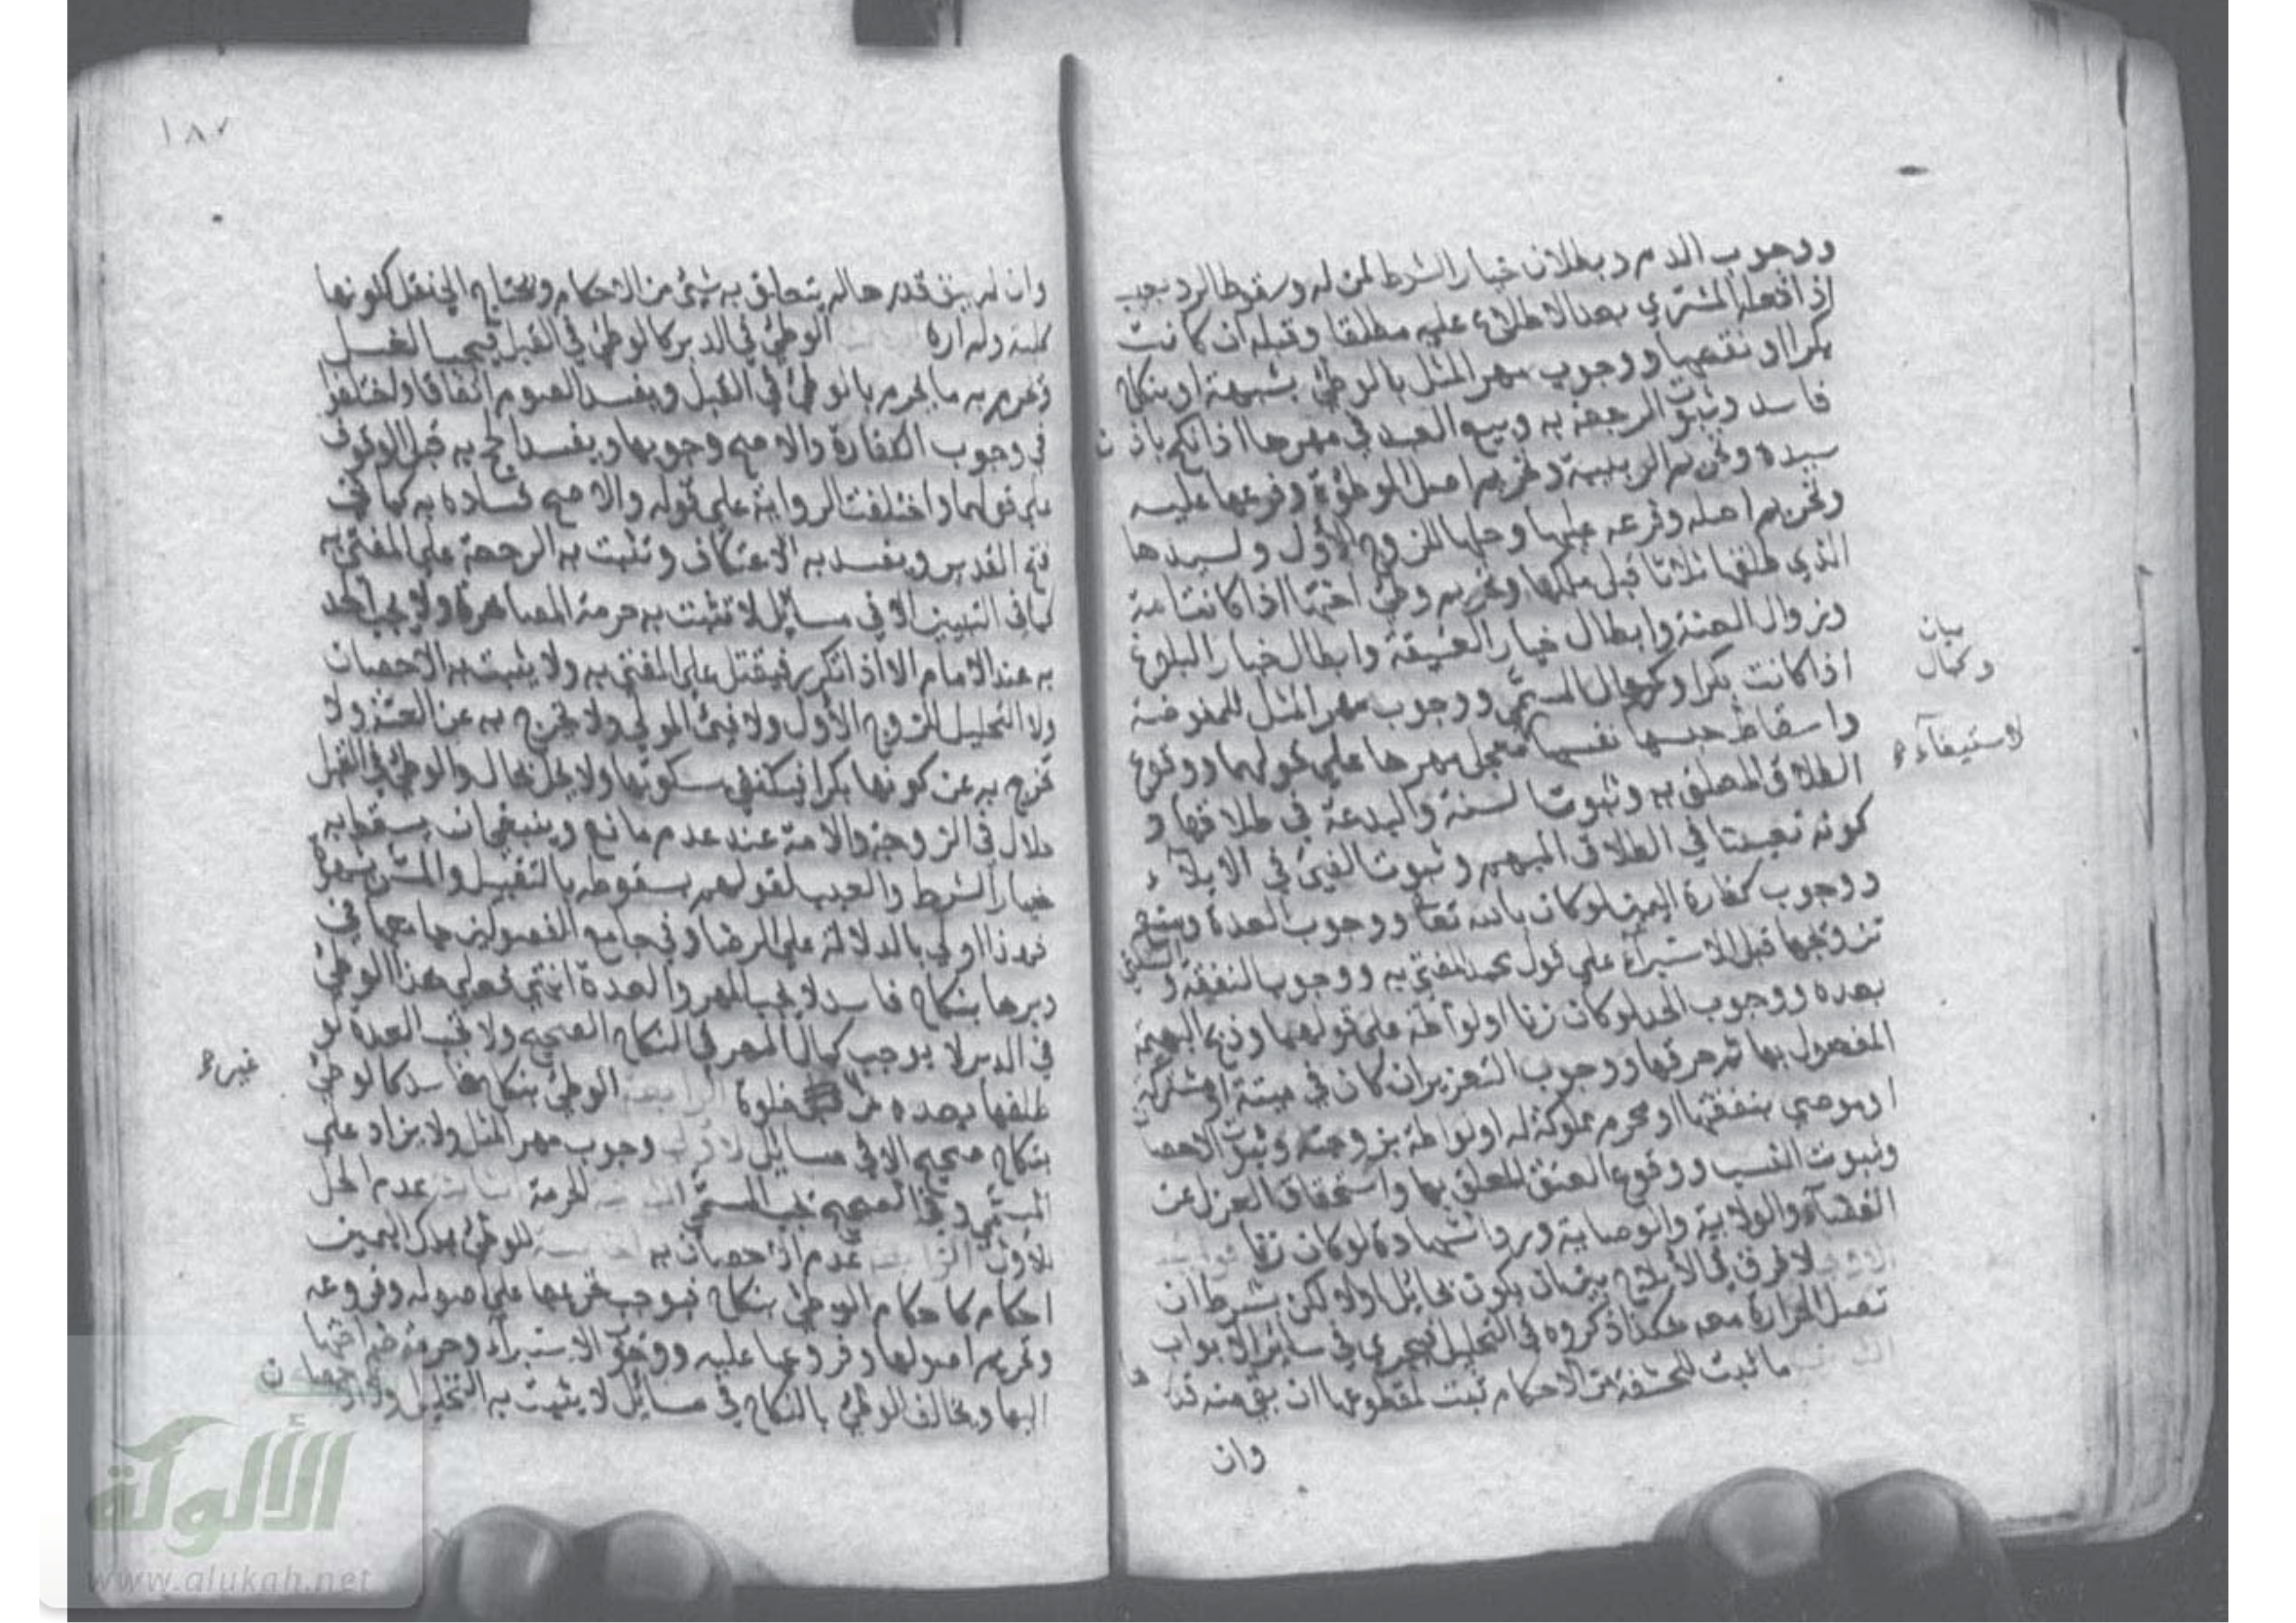 ووجوب الدم وبطلان خيار الشرط لمن له وسقوط الرد بعيب
اذا فعله المشتري بعد الاطلاع عليه مطلقا وقبله ان كانت
بكرا او نقصها ووجوب مهر المثل بالوطئ بشبهة او بنكاح
فاسد وثبوت الرجعة به وبيع العبد في مهرها اذا نكح باذن
سيده وتحريم الربيبة وتحريم اصل الموطؤة وفرعها عليه
وتحريم اصله وفرعه عليها وحلها للزوج الأول ولسيدها
الذي طلقها ثلاثا قبل ملكها وتحريم وطئ اختها اذا كانت امة
وزوال العنة وابطال خيار العتيقة وابطال خيار البلوغ
بيان
اذا كانت بكرا وكمال المسمّي ووجوب مهر المثل للمفوضة
وكمال
واسقاط حبسها نفسها معجل مهرها علي قولهما ووقوع
لاستيفآء
الطلاق المعلق به وثبوت السنة والبدعة في طلاقها و
كونه تعيينا في الطلاق المبهم وثبوت الفيئ في الايلآء
ووجوب كفارة اليمين لوكان بالله تعا ووجوب العدة ومنع
تزوجها قبل الاستبرآء علي قول محمد المفتي به ووجوب النفقة و السكني
بعده ووجوب الحد لوكان زنا او لواطة علي قولهما وذبح البهيمة
المفعول بها ثم حرقها ووجوب التعزير ان كان في ميتة او مشتركة
او موصي بنفقتها او محرم مملوكة له او لواطة بزوجته وثبوت الاحصان
وثبوت النسب ووقوع العتق المعلق بها واستحقاق العزل عن
القضآء والولاية والوصاية ورد الشهادة لوكان زنا فوايد
الاولي لا فرق في الأيلاج بين ان يكون بحائل اولا لكن بشرط ان
تصل الحرارة معه هكذا ذكروه في التحليل فيجري في ساير الابواب
ما ثبت للحشفة من الاحكام ثبت لمقطوعها ان بقي منه قدرها
وان
١٨٧
وان لم يبق قدرها لم يتعلق به شيئ من الاحكام ويحتاج الي نقل لكونها
كلية ولم اره الوطئ في الدبر كالوطئ في القبل فيجب الغسل
ويحرم به ما يحرم بالوطئ في القبل ويفسد الصوم اتفاقا واختلفوا
في وجوب الكفارة والاصح وجوبها ويفسد الحج به قبل الوقوف
علي قولهما واختلفت الرواية علي قوله والاصح فساده به كما في
فتح القدير ويفسد به الاعتكاف وتثبت به الرجعة علي المفتي به
كما في التبيين الا في مسايل لا تثبت به حرمة المصاهرة ولا يجب الحد
به عند الامام الا اذا تكرر فيقتل علي المفتي به ولا يثبت به الاحصان
ولا التحليل للزوج الأول ولا فيئ المولي ولا يخرج به عن العنة ولا
تخرج به عن كونها بكرا فيكتفي بسكوتها ولا يحل بحال والوطئ في القبل
حلال في الزوجة والامة عند عدم مانع وينبغي ان يسقط به
خيار الشرط والعيب لقولهم بسقوطه بالتقبيل والمس بشهوة
فهذا اولي بالدلالة علي الرضا وفي جامع الفصولين جامعها في
دبرها بنكاح فاسد لا يجب المهر والعدة انتهي فعلي هذا الوطئ
في الدبر لا يوجب كمال المهر في النكاح الصحيح ولا تجب العدة لو
طلقها بعده من خلوة الرابعة الوطئ بنكاح فاسد كالوطئ
غير
بنكاح صحيح الا في مسايل الاولي وجوب مهر المثل ولا يزاد علي
المسمّي وفي الصحيح يجب المسمّي الحرمة عدم الحل
للاول الرابعة عدم الاحصان به للوطئ بملك اليمين
احكام كاحكام الوطئ بنكاح فيوجب تحريمها علي اصوله وفروعه
وتحريم اصولها وفروعها عليه ووجوب الاستبرآء وحرمة ضم اختها
اليها ويخالف الوطئ بالنكاح في مسايل لا يثبت به التحليل ولا الاحصان
الألوكة
www.alukah.net